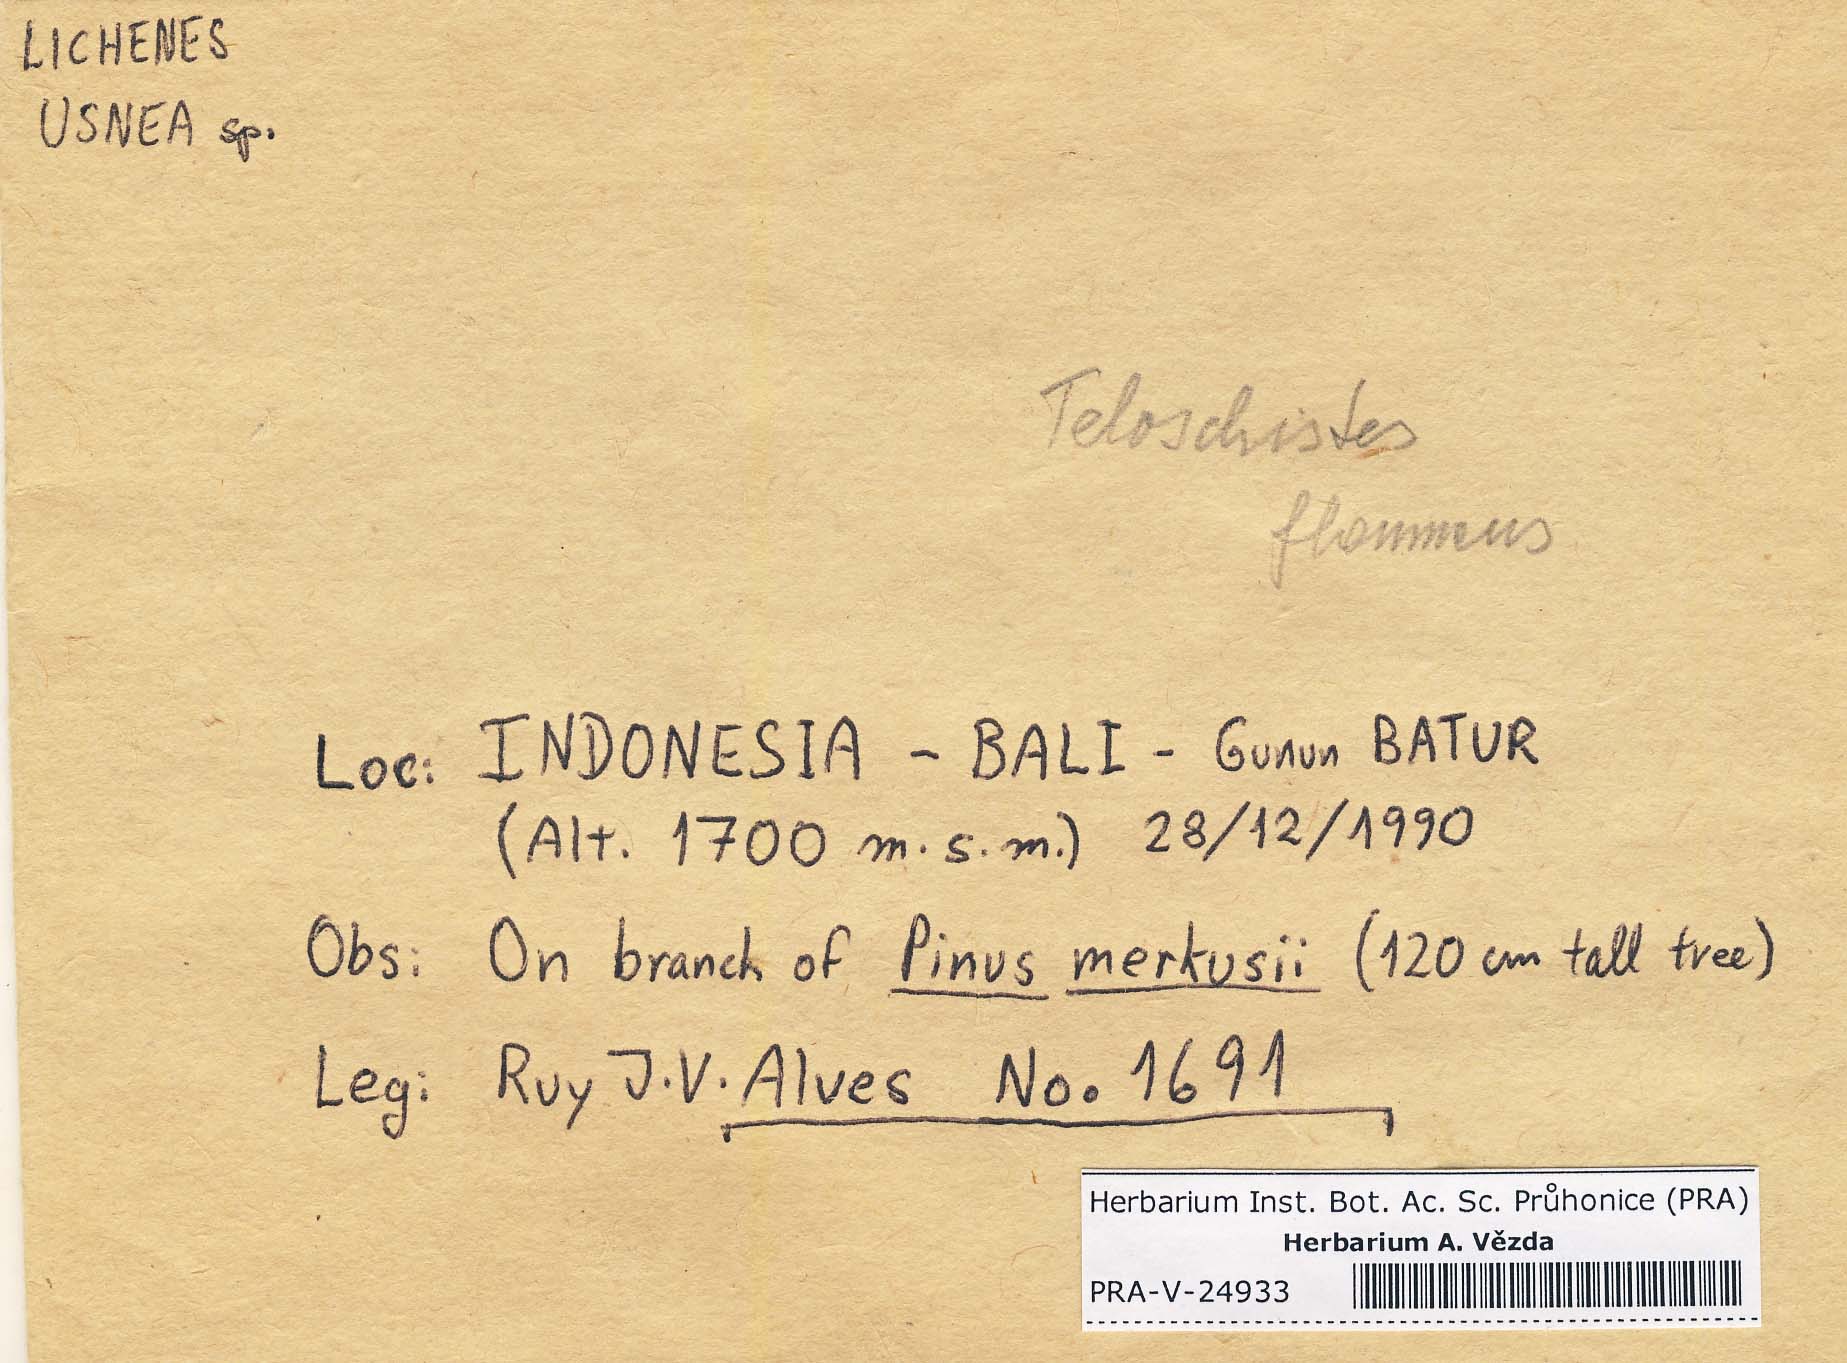 LICHENES
USNEA sp.
Teloschistes
flammeus
Loc: INDONESIA - BALI - Gunun BATUR
(Alt. 1700 m.s.m.) 28/12/1990
Obs: On branch of Pinus merkusii (120 cm tall tree)
Leg: Ruy J.V. Alves No. 1691
Herbarium Inst. Bot. Ac. Sc. Průhonice (PRA)
Herbarium A. Vězda
PRA-V-24933